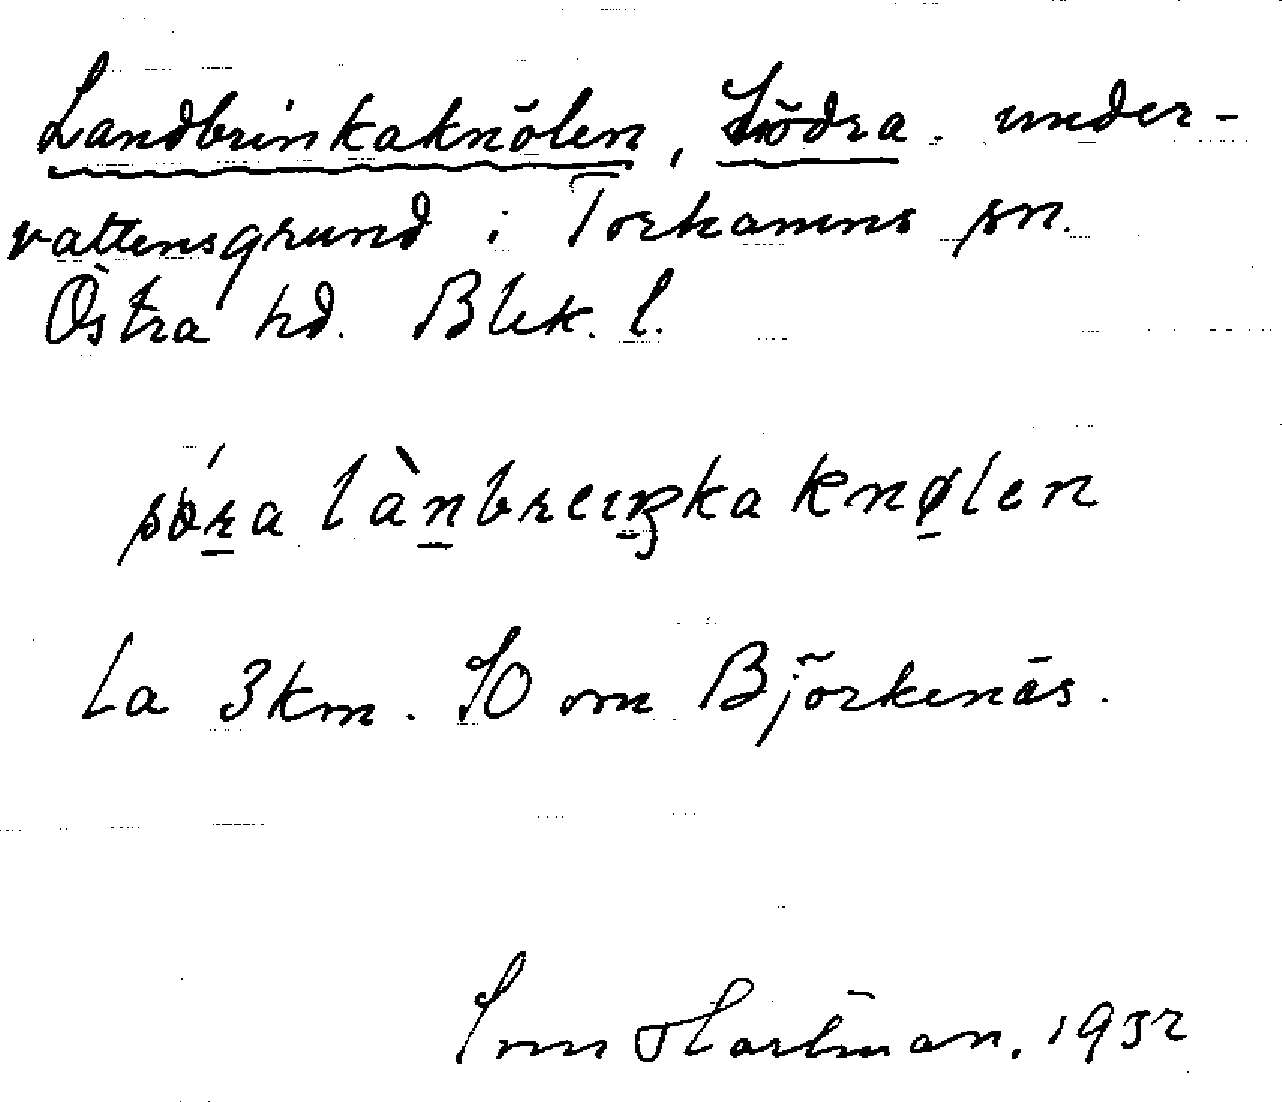 Landbrinkaknölen, Södra. under-
vattensgrund i Torhamns sn.
Östra hd. Blek. l.
söra lànbreiŋka knølen
Ca 3 km. SO om Björkenäs.
Hartman. 1932